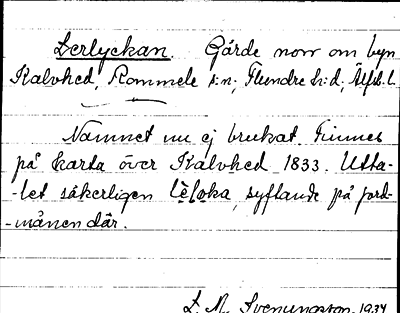 Lerlyckan. Gärde norr om byn
Kalvhed, Rommele s:n, Flundre h:d, Älfsb. l.
Namnet nu ej brukat. Finnes
på karta över Kalvhed 1833. Utta-
-let säkerligen lèl̨oka, syftande på jord-
-månen där.
L. M. Svenungsson. 1934